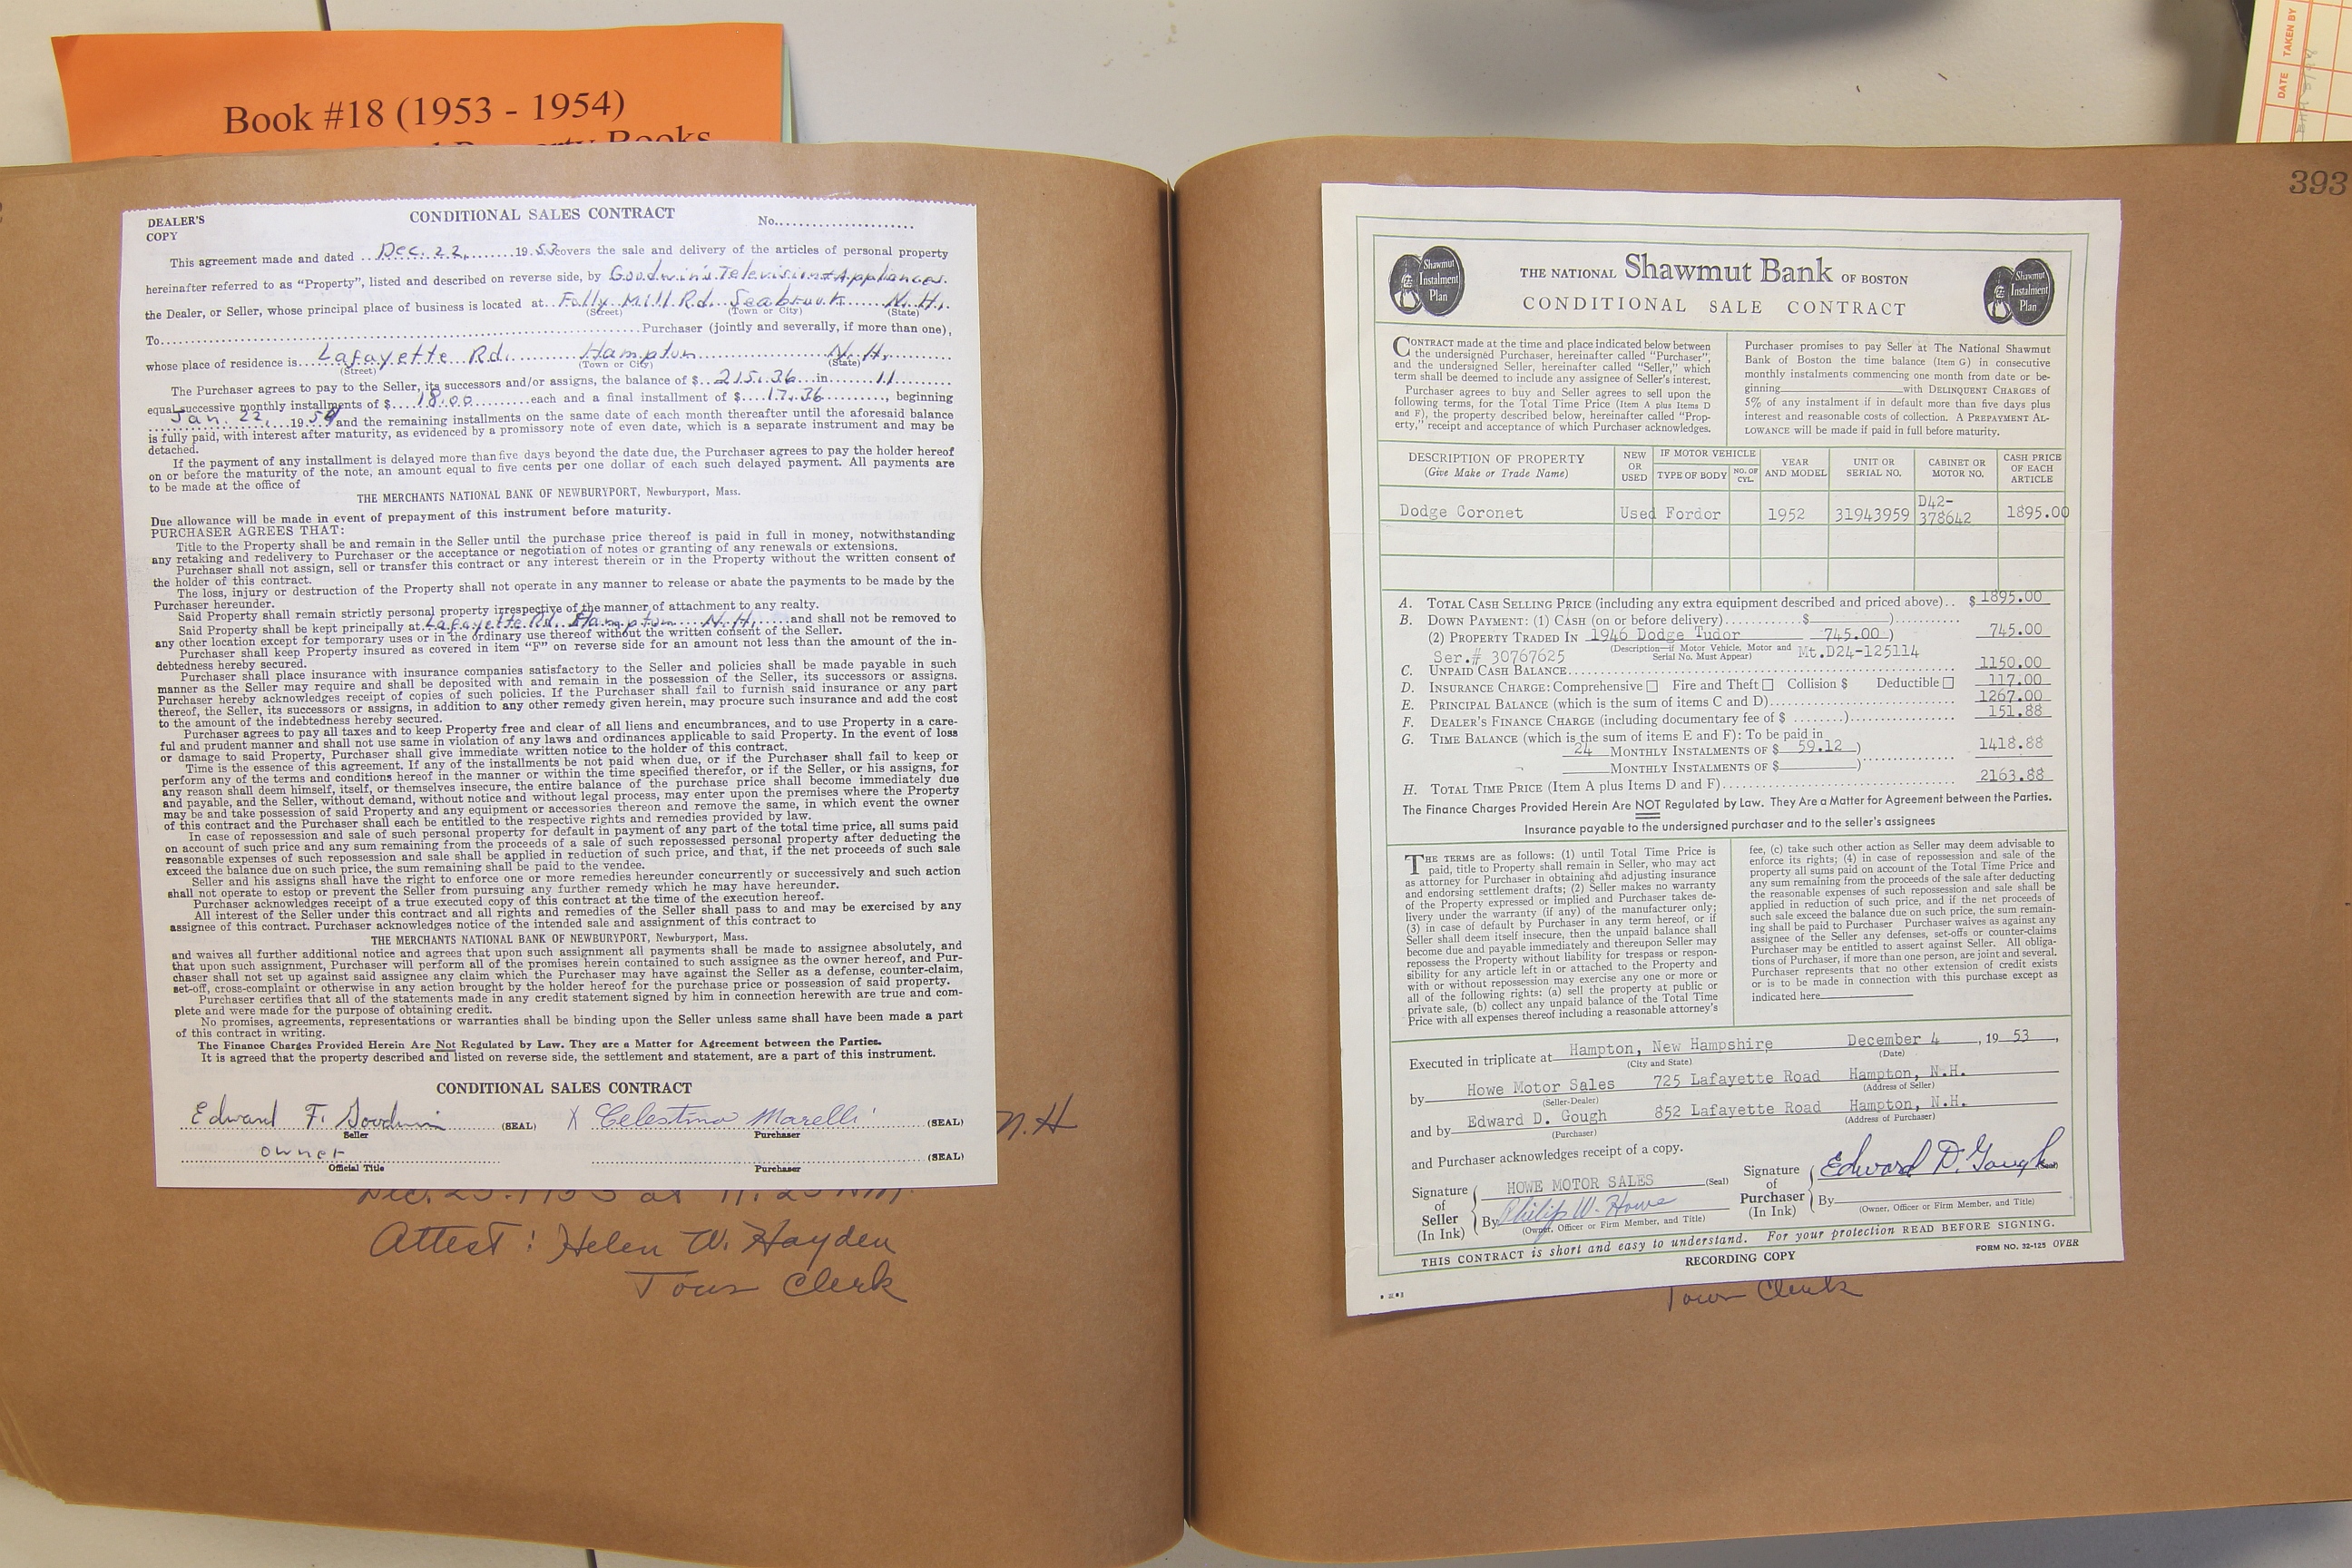 Book #18 (1953 - 1954)
Property Books
DATE TAKEN BY
393
DEALER'S
COPY
CONDITIONAL SALES CONTRACT
No.
This agreement made and dated Dec. 22, 1953 covers the sale and delivery of the articles of personal property
hereinafter referred to as "Property", listed and described on reverse side, by Goodwin's Television & Appliances.
the Dealer, or Seller, whose principal place of business is located at Folly Mill Rd. Seabrook N. H.
(Street) (Town or City) (State)
To Purchaser (jointly and severally, if more than one),
whose place of residence is Lafayette Rd. Hampton N. H.
(Street) (Town or City) (State)
The Purchaser agrees to pay to the Seller, its successors and/or assigns, the balance of $ 215.36 in 11
equal successive monthly installments of $ 18.00 each and a final installment of $ 17.36, beginning
Jan. 22, 1954 and the remaining installments on the same date of each month thereafter until the aforesaid balance
is fully paid, with interest after maturity, as evidenced by a promissory note of even date, which is a separate instrument and may be
detached.
If the payment of any installment is delayed more than five days beyond the date due, the Purchaser agrees to pay the holder hereof
on or before the maturity of the note, an amount equal to five cents per one dollar of each such delayed payment. All payments are
to be made at the office of
THE MERCHANTS NATIONAL BANK OF NEWBURYPORT, Newburyport, Mass.
Due allowance will be made in event of prepayment of this instrument before maturity.
PURCHASER AGREES THAT:
Title to the Property shall be and remain in the Seller until the purchase price thereof is paid in full in money, notwithstanding
any retaking and redelivery to Purchaser or the acceptance or negotiation of notes or granting of any renewals or extensions.
Purchaser shall not assign, sell or transfer this contract or any interest therein or in the Property without the written consent of
the holder of this contract.
The loss, injury or destruction of the Property shall not operate in any manner to release or abate the payments to be made by the
Purchaser hereunder.
Said Property shall remain strictly personal property irrespective of the manner of attachment to any realty.
Said Property shall be kept principally at Lafayette Rd. Hampton N. H. and shall not be removed to
any other location except for temporary uses or in the ordinary use thereof without the written consent of the Seller.
Purchaser shall keep Property insured as covered in item "F" on reverse side for an amount not less than the amount of the in-
debtedness hereby secured.
Purchaser shall place insurance with insurance companies satisfactory to the Seller and policies shall be made payable in such
manner as the Seller may require and shall be deposited with and remain in the possession of the Seller, its successors or assigns.
Purchaser hereby acknowledges receipt of copies of such policies. If the Purchaser shall fail to furnish said insurance or any part
thereof, the Seller, its successors or assigns, in addition to any other remedy given herein, may procure such insurance and add the cost
to the amount of the indebtedness hereby secured.
Purchaser agrees to pay all taxes and to keep Property free and clear of all liens and encumbrances, and to use Property in a care-
ful and prudent manner and shall not use same in violation of any laws and ordinances applicable to said Property. In the event of loss
or damage to said Property, Purchaser shall give immediate written notice to the holder of this contract.
Time is the essence of this agreement. If any of the installments be not paid when due, or if the Purchaser shall fail to keep or
perform any of the terms and conditions hereof in the manner or within the time specified therefor, or if the Seller, or his assigns, for
any reason shall deem himself, itself, or themselves insecure, the entire balance of the purchase price shall become immediately due
and payable, and the Seller, without demand, without notice and without legal process, may enter upon the premises where the Property
may be and take possession of said Property and any equipment or accessories thereon and remove the same, in which event the owner
of this contract and the Purchaser shall each be entitled to the respective rights and remedies provided by law.
In case of repossession and sale of such personal property for default in payment of any part of the total time price, all sums paid
on account of such price and any sum remaining from the proceeds of a sale of such repossessed personal property after deducting the
reasonable expenses of such repossession and sale shall be applied in reduction of such price, and that, if the net proceeds of such sale
exceed the balance due on such price, the sum remaining shall be paid to the vendee.
Seller and his assigns shall have the right to enforce one or more remedies hereunder concurrently or successively and such action
shall not operate to estop or prevent the Seller from pursuing any further remedy which he may have hereunder.
Purchaser acknowledges receipt of a true executed copy of this contract at the time of the execution hereof.
All interest of the Seller under this contract and all rights and remedies of the Seller shall pass to and may be exercised by any
assignee of this contract. Purchaser acknowledges notice of the intended sale and assignment of this contract to
THE MERCHANTS NATIONAL BANK OF NEWBURYPORT, Newburyport, Mass.
and waives all further additional notice and agrees that upon such assignment all payments shall be made to assignee absolutely, and
that upon such assignment, Purchaser will perform all of the promises herein contained to such assignee as the owner hereof, and Pur-
chaser shall not set up against said assignee any claim which the Purchaser may have against the Seller as a defense, counter-claim,
set-off, cross-complaint or otherwise in any action brought by the holder hereof for the purchase price or possession of said property.
Purchaser certifies that all of the statements made in any credit statement signed by him in connection herewith are true and com-
plete and were made for the purpose of obtaining credit.
No promises, agreements, representations or warranties shall be binding upon the Seller unless same shall have been made a part
of this contract in writing.
The Finance Charges Provided Herein Are Not Regulated by Law. They are a Matter for Agreement between the Parties.
It is agreed that the property described and listed on reverse side, the settlement and statement, are a part of this instrument.
CONDITIONAL SALES CONTRACT
Edward F. Goodwin (SEAL) X Celestino Marelli (SEAL)
Seller Purchaser
owner (SEAL)
Official Title Purchaser
N.H
Dec. 23-1953 at 11:25 AM.
Attest: Helen W. Hayden
Town Clerk
Shawmut Instalment Plan
THE NATIONAL Shawmut Bank OF BOSTON
CONDITIONAL SALE CONTRACT
Shawmut Instalment Plan
CONTRACT made at the time and place indicated below between
the undersigned Purchaser, hereinafter called "Purchaser",
and the undersigned Seller, hereinafter called "Seller," which
term shall be deemed to include any assignee of Seller's interest.
Purchaser agrees to buy and Seller agrees to sell upon the
following terms, for the Total Time Price (Item A plus Items D
and F), the property described below, hereinafter called "Prop-
erty," receipt and acceptance of which Purchaser acknowledges.
Purchaser promises to pay Seller at The National Shawmut
Bank of Boston the time balance (Item G) in consecutive
monthly instalments commencing one month from date or be-
ginning with DELINQUENT CHARGES of
5% of any instalment if in default more than five days plus
interest and reasonable costs of collection. A PREPAYMENT AL-
LOWANCE will be made if paid in full before maturity.
DESCRIPTION OF PROPERTY (Give Make or Trade Name)
NEW OR USED
IF MOTOR VEHICLE
TYPE OF BODY
NO. OF CYL.
YEAR AND MODEL
UNIT OR SERIAL NO.
CABINET OR MOTOR NO.
CASH PRICE OF EACH ARTICLE
Dodge Coronet Used Fordor 1952 31943959 D42-378642 1895.00
A. TOTAL CASH SELLING PRICE (including any extra equipment described and priced above).. $ 1895.00
B. DOWN PAYMENT: (1) CASH (on or before delivery) $ )
(2) PROPERTY TRADED IN 1946 Dodge Tudor 745.00 ) 745.00
Ser.# 30767625 (Description—if Motor Vehicle, Motor and Serial No. Must Appear) Mt.D24-125114
C. UNPAID CASH BALANCE 1150.00
D. INSURANCE CHARGE: Comprehensive Fire and Theft Collision $ Deductible 117.00
E. PRINCIPAL BALANCE (which is the sum of items C and D) 1267.00
F. DEALER'S FINANCE CHARGE (including documentary fee of $ ........) 151.88
G. TIME BALANCE (which is the sum of items E and F): To be paid in
24 MONTHLY INSTALMENTS OF $ 59.12 ) 1418.88
MONTHLY INSTALMENTS OF $ )
H. TOTAL TIME PRICE (Item A plus Items D and F) 2163.88
The Finance Charges Provided Herein Are NOT Regulated by Law. They Are a Matter for Agreement between the Parties.
Insurance payable to the undersigned purchaser and to the seller's assignees
THE TERMS are as follows: (1) until Total Time Price is
paid, title to Property shall remain in Seller, who may act
as attorney for Purchaser in obtaining and adjusting insurance
and endorsing settlement drafts; (2) Seller makes no warranty
of the Property expressed or implied and Purchaser takes de-
livery under the warranty (if any) of the manufacturer only;
(3) in case of default by Purchaser in any term hereof, or if
Seller shall deem itself insecure, then the unpaid balance shall
become due and payable immediately and thereupon Seller may
repossess the Property without liability for trespass or respon-
sibility for any article left in or attached to the Property and
with or without repossession may exercise any one or more or
all of the following rights: (a) sell the property at public or
private sale, (b) collect any unpaid balance of the Total Time
Price with all expenses thereof including a reasonable attorney's
fee, (c) take such other action as Seller may deem advisable to
enforce its rights; (4) in case of repossession and sale of the
property all sums paid on account of the Total Time Price and
any sum remaining from the proceeds of the sale after deducting
the reasonable expenses of such repossession and sale shall be
applied in reduction of such price, and if the net proceeds of
such sale exceed the balance due on such price, the sum remain-
ing shall be paid to Purchaser Purchaser waives as against any
assignee of the Seller any defenses, set-offs or counter-claims
Purchaser may be entitled to assert against Seller. All obliga-
tions of Purchaser, if more than one person, are joint and several.
Purchaser represents that no other extension of credit exists
or is to be made in connection with this purchase except as
indicated here
Executed in triplicate at Hampton, New Hampshire December 4, 19 53,
(City and State) (Date)
by Howe Motor Sales 725 Lafayette Road Hampton, N.H.
(Seller-Dealer) (Address of Seller)
and by Edward D. Gough 852 Lafayette Road Hampton, N.H.
(Purchaser) (Address of Purchaser)
and Purchaser acknowledges receipt of a copy.
Signature of Seller (In Ink) HOWE MOTOR SALES (Seal)
By Philip W. Howe
(Owner, Officer or Firm Member, and Title)
Signature of Purchaser (In Ink) Edward D. Gough (Seal)
By
(Owner, Officer or Firm Member, and Title)
THIS CONTRACT is short and easy to understand. For your protection READ BEFORE SIGNING.
RECORDING COPY
FORM NO. 32-125 OVER
Town Clerk